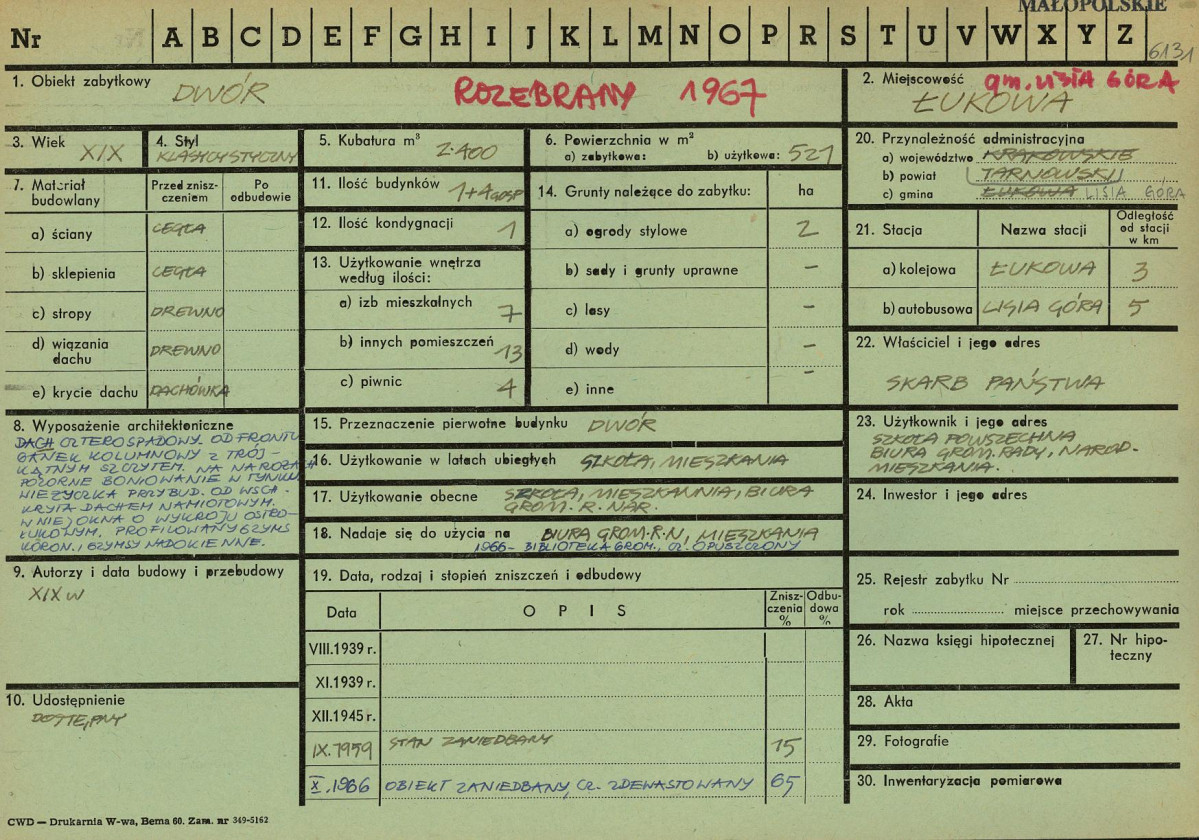 MAŁOPOLSKIE
Nr A B C D E F G H I J K L M N O P R S T U V W X Y Z
6131
1. Obiekt zabytkowy
DWÓR
ROZEBRANY 1967
2. Miejscowość
gm. LISIA GÓRA
ŁUKOWA
3. Wiek
XIX
4. Styl
KLASYCYSTYCZNY
5. Kubatura m³
2.400
6. Powierzchnia w m²
a) zabytkowa: b) użytkowa: 521
20. Przynależność administracyjna
a) województwo KRAKOWSKIE
b) powiat TARNOWSKI
c) gmina ŁUKOWA LISIA GÓRA
7. Materiał budowlany
Przed znisz-
czeniem
Po
odbudowie
a) ściany CEGŁA
b) sklepienia CEGŁA
c) stropy DREWNO
d) wiązania
dachu DREWNO
e) krycie dachu DACHÓWKA
11. Ilość budynków 1+4 GOSP
12. Ilość kondygnacji 1
13. Użytkowanie wnętrza
według ilości:
a) izb mieszkalnych 7
b) innych pomieszczeń 13
c) piwnic 4
14. Grunty należące do zabytku: ha
a) ogrody stylowe 2
b) sady i grunty uprawne –
c) lasy –
d) wody –
e) inne –
21. Stacja Nazwa stacji Odległość
od stacji
w km
a) kolejowa ŁUKOWA 3
b) autobusowa LISIA GÓRA 5
22. Właściciel i jego adres
SKARB PAŃSTWA
8. Wyposażenie architektoniczne
DACH CZTEROSPADOWY. OD FRONTU
GANEK KOLUMNOWY Z TRÓJ-
KĄTNYM SZCZYTEM. NA NAROŻACH
POZORNE BONIOWANIE W TYNKU.
WIEŻYCZKA PRZYBUD. OD WSCH.
KRYTA DACHEM NAMIOTOWYM.
W NIEJ OKNA O WYKROJU OSTRO-
ŁUKOWYM. PROFILOWANY GZYMS
KORON. I GZYMSY NADOKIENNE.
15. Przeznaczenie pierwotne budynku DWÓR
16. Użytkowanie w latach ubiegłych SZKOŁA, MIESZKANIA
17. Użytkowanie obecne SZKOŁA, MIESZKANNIA, BIURA
GROM. R. NAR.
18. Nadaje się do użycia na BIURA GROM.R.N, MIESZKANIA
1966 – BIBLIOTEKA GROM., CZ. OPUSZCZONY
23. Użytkownik i jego adres
SZKOŁA POWSZECHNA
BIURA GROM. RADY, NAROD.
MIESZKANIA.
24. Inwestor i jego adres
9. Autorzy i data budowy i przebudowy
XIX w
10. Udostępnienie
DOSTĘPNY
19. Data, rodzaj i stopień zniszczeń i odbudowy
Data OPIS Znisz-
czenia
% Odbu-
dowa
%
VIII.1939 r.
XI.1939 r.
XII.1945 r.
IX.1959 STAN ZANIEDBANY 15
X.1966 OBIEKT ZANIEDBANY, CZ. ZDEWASTOWANY 65
25. Rejestr zabytku Nr
rok miejsce przechowywania
26. Nazwa księgi hipotecznej
27. Nr hipo-
teczny
28. Akta
29. Fotografie
30. Inwentaryzacja pomiarowa
CWD — Drukarnia W-wa, Bema 60. Zam. nr 349-5162